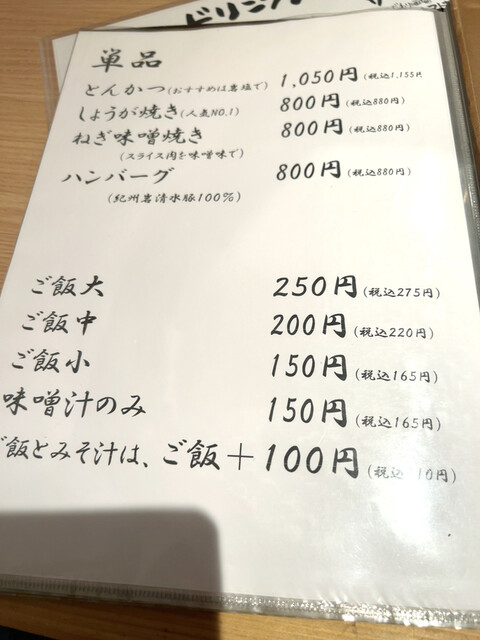 ドリンク
単品
とんかつ(おすすめは岩塩で) 1,050円(税込1,155円
しょうが焼き(人気NO.1) 800円(税込880円)
ねぎ味噌焼き 800円(税込880円)
(スライス肉を味噌味で)
ハンバーグ 800円(税込880円)
(紀州岩清水豚100%)
ご飯大 250円(税込275円)
ご飯中 200円(税込220円)
ご飯小 150円(税込165円)
味噌汁のみ 150円(税込165円)
ご飯とみそ汁は、ご飯+100円(税込 10円)